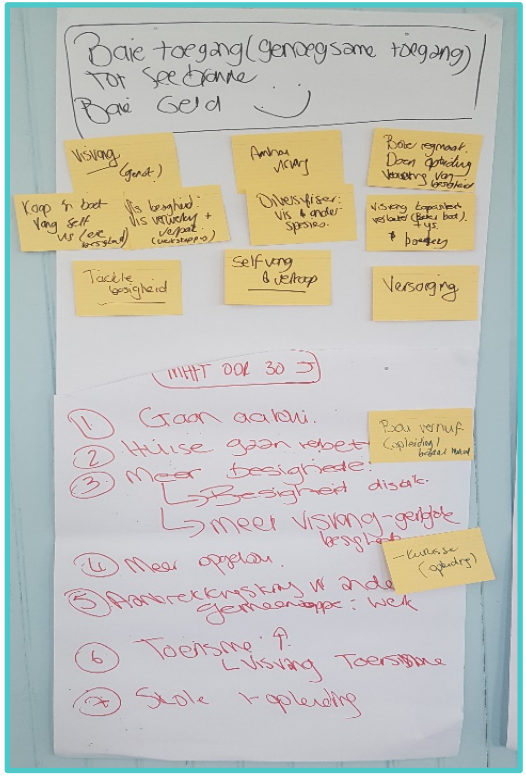 Baie toegang (genoegsame toegang)
tot seebronne
Baie Geld
Visvang
(genot)
Anhou
visvang
Baie regmaat.
Doen opleiding
van
besigheid
Koop 'n boot
Vang self
vis (eie
besigheid)
Vis besigheid:
Vis verwerk +
verpak
Diversifiseer:
vis & ander
spesies.
Visvang
(Beter boot).
+ ys.
Tackle
besigheid
Self vang
& verkoop
Versorging
MHHT OOR 30 J
1 Gaan
2 Huise gaan
3 Meer besighede:
Besigheid
meer visvang-gerigte
besighede
4 Meer
5 Aantrekkingskrag vir ander
gemeenskappe: werk
6 Toerisme ↑
Visvang Toerisme
7 Skole + opleiding
Bou vernuf
(opleiding)
- Kursusse
(opleiding)